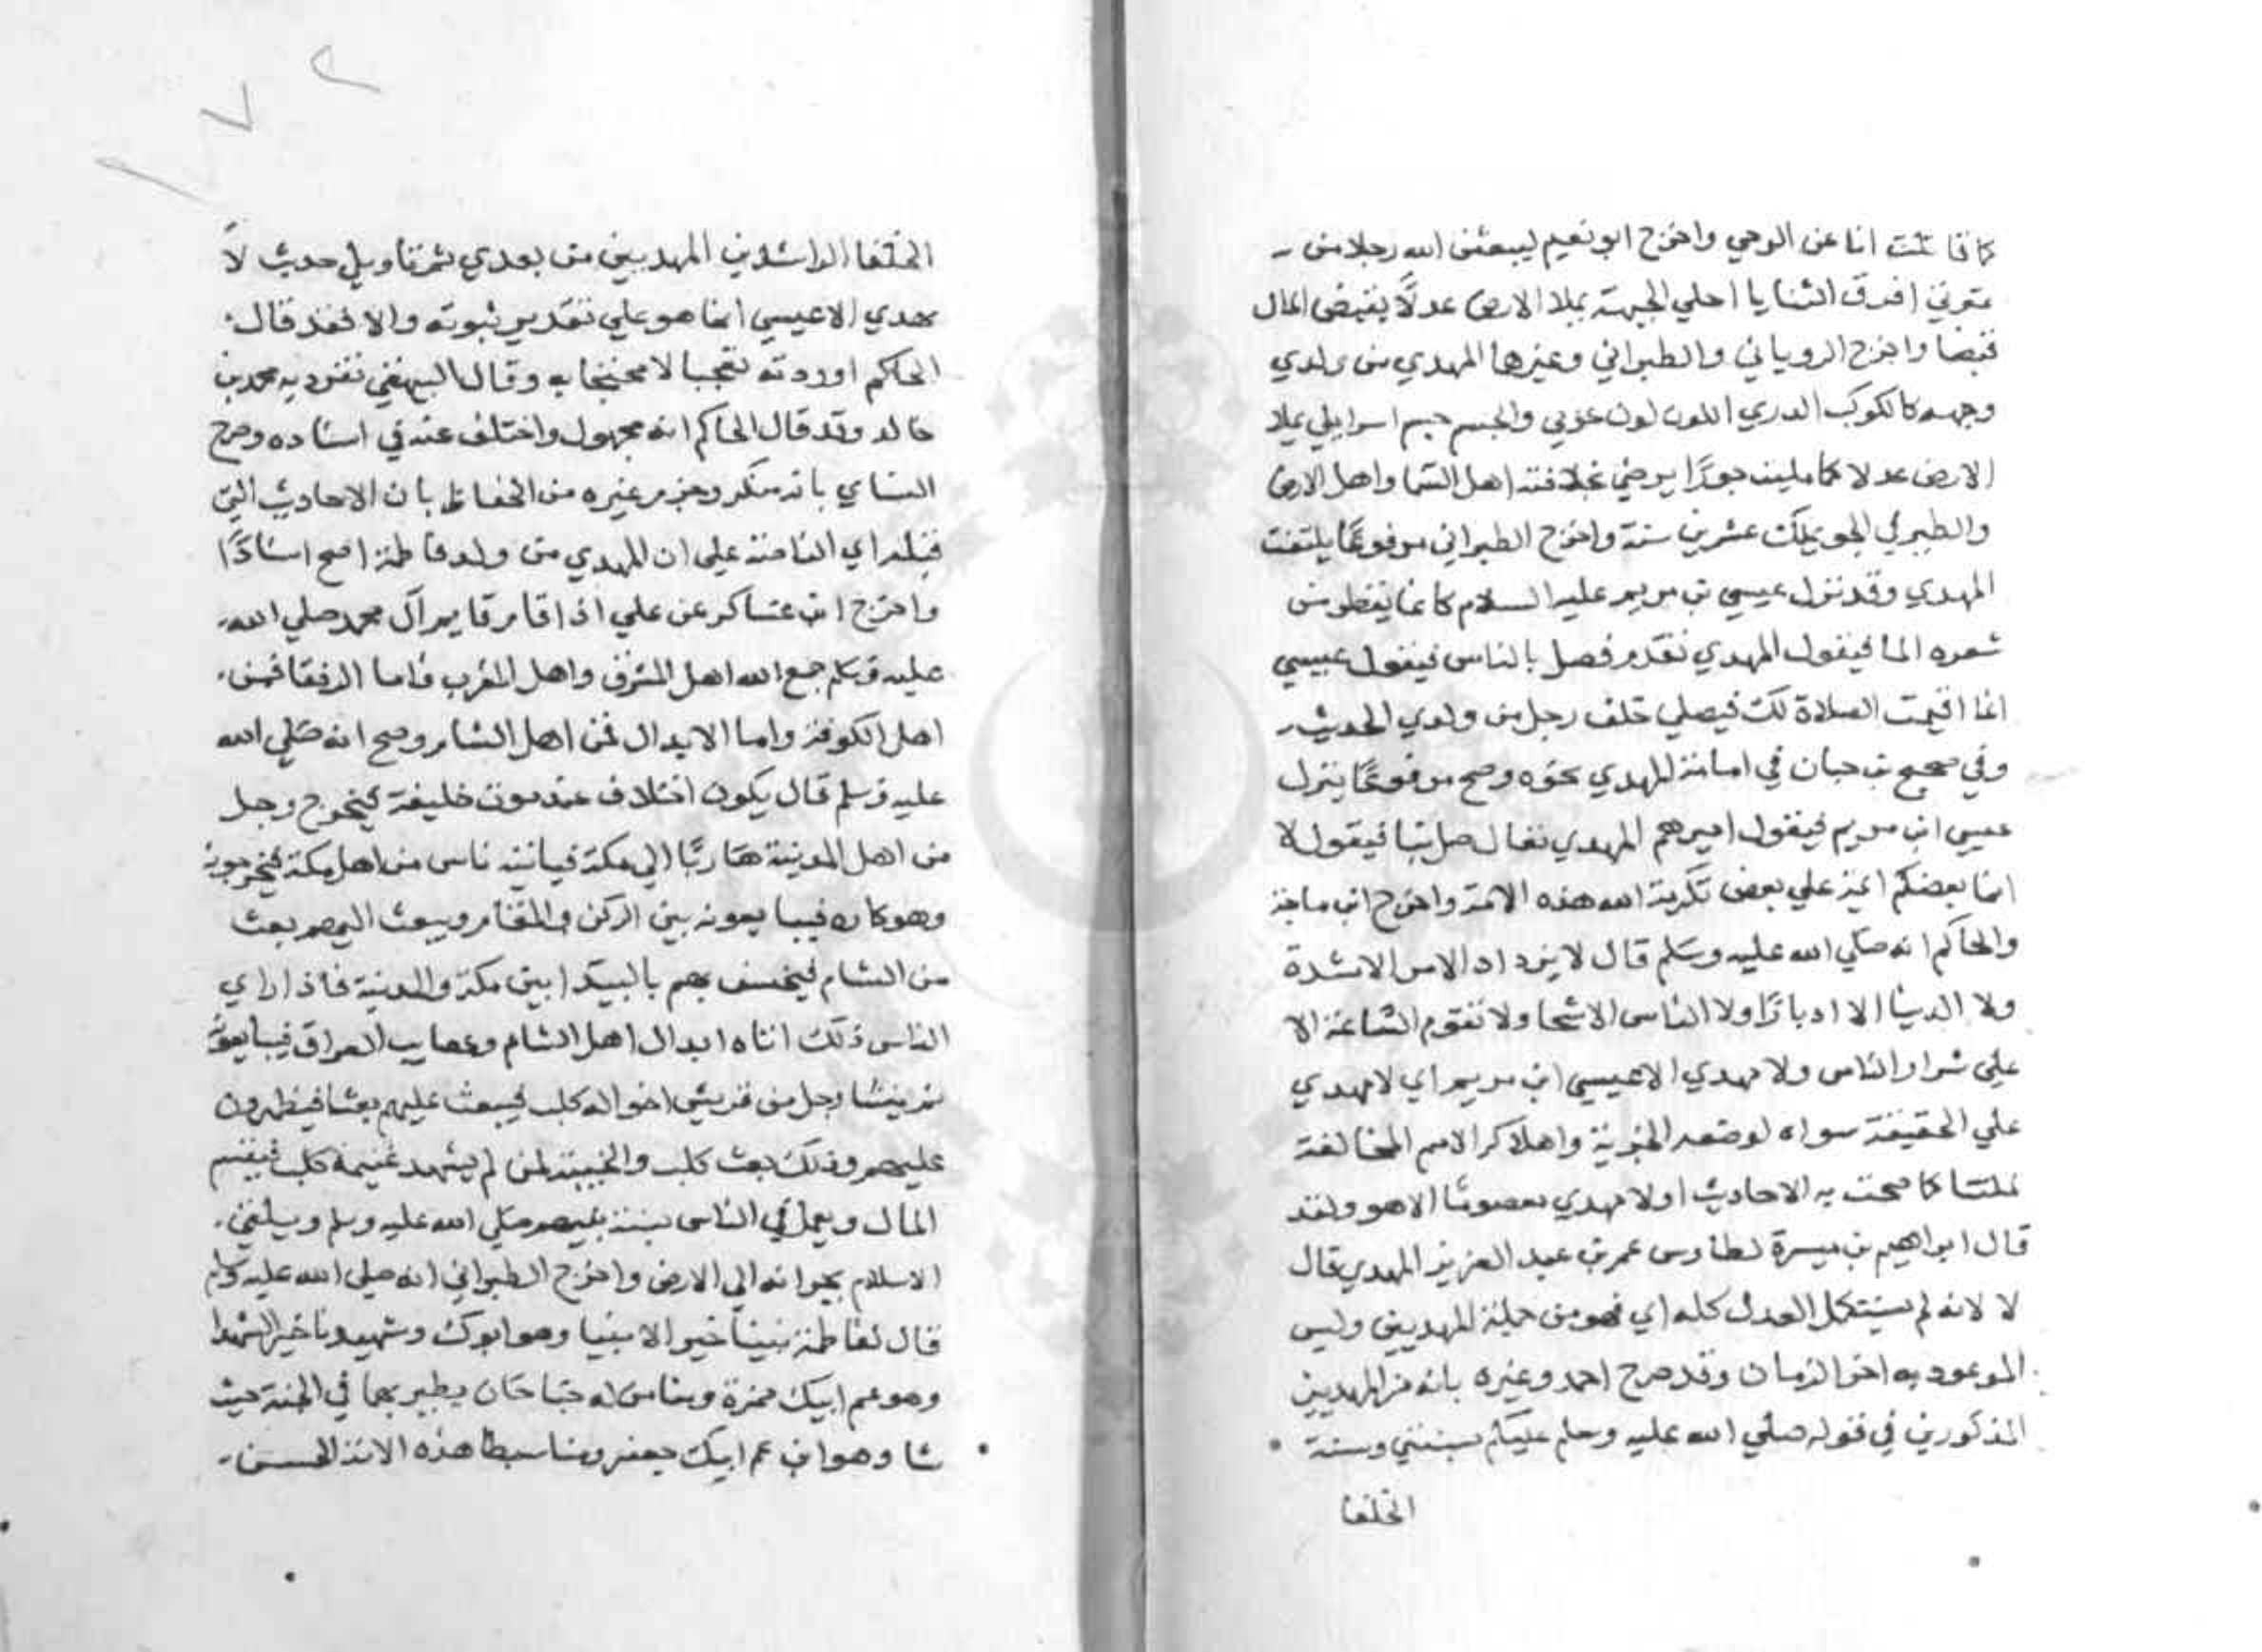 كما قاتلت انا عن الوحي واخرج ابو نعيم ليبعثن الله رجلا من
عترتي افرق الثنايا اجلي الجبهة يملا الارض عدلًا يفيض المال
فيضا واخرج الروياني والطبراني وغيرها المهدي من ولدي
وجهه كالكوكب الدري اللون لون عربي والجسم جسم اسرايلي يملا
الارض عدلا كما مليت جورًا يرضي بخلافته اهل السما واهل الارض
والطير في الجو يملك عشرين سنة واخرج الطبراني مرفوعًا يلتفت
المهدي وقد نزل عيسي بن مريم عليه السلام كانما يقطر من
شعره الما فيقول المهدي تقدم فصل بالناس فيقول عيسي
انما اقيمت الصلاة لك فيصلي خلف رجل من ولدي الحديث
وفي صحيح بن حبان في امامة المهدي نحوه وصح مرفوعًا ينزل
عيسي ابن مريم فيقول اميرهم المهدي تعال صل بنا فيقول لا
انما بعضكم ايمة علي بعض تكرمة الله هذه الامة واخرج ابن ماجة
والحاكم انه صلي الله عليه وسلم قال لا يزداد الامر الا شدة
ولا الدينا الا ادبارًا ولا الناس الا شحا ولا تقوم الساعة الا
علي شرار الناس ولا مهدي الا عيسي ابن مريم اي لا مهدي
علي الحقيقة سواه لوضعه الجزية واهلاكه الامم المخالفة
لملتنا كما صحت به الاحاديث او لا مهدي معصومًا الا هو ولقد
قال ابراهيم بن ميسرة لطاوس عمر بن عبد العزيز المهدي قال
لا لانه لم يستكمل العدل كله اي فهو من جملة المهديين وليس
الموعود به اخر الزمان وقد صرح احمد وغيره بانه من المهديين
المذكورين في قوله صلي الله عليه وسلم عليكم بسنتي وسنة
الخلفا
الخلفا الراشدين المهديين من بعدي ثم تاويل حديث لا
مهدي الا عيسي انما هو علي تقدير ثبوته والا فقد قال
الحاكم اوردته تعجبا لا محتجا به وقال البيهقي تفرد به محمد بن
خالد وقد قال الحاكم انه مجهول واختلف عنه في اسناده وصرح
النساي بانه منكر وجزم غيره من الحفاظ بان الاحاديث التي
قبله اي الناصة علي ان المهدي من ولد فاطمة اصح اسنادًا
واخرج ابن عساكر عن علي اذا قام قايم آل محمد صلي الله
عليه وسلم جمع الله اهل المشرق واهل المغرب فاما الرفقا فمن
اهل الكوفة واما الابدال فمن اهل الشام وصح انه صلي الله
عليه وسلم قال يكون اختلاف عند موت خليفة فيخرج رجل
من اهل المدينة هاربًا الي مكة فياتيه ناس من اهل مكة فيخرجونه
وهو كاره فيبايعونه بين الركن والمقام ويبعث اليهم بعث
من الشام فيخسف بهم بالبيدا بين مكة والمدينة فاذا راي
الناس ذلك اتاه ابدال اهل الشام وعصايب العراق فيبايعونه
ثم ينشا رجل من قريش اخواله كلب فيبعث عليهم بعثا فيظهرون
عليهم وذلك بعث كلب والخيبة لمن لم يشهد غنيمة كلب فيقسم
المال ويعمل في الناس بسنة نبيهم صلي الله عليه وسلم ويلقي
الاسلام بجرانه الي الارض واخرج الطبراني انه صلي الله عليه وسلم
قال لفاطمة نبينا خير الانبيا وهو ابوك وشهيدنا خير الشهدا
وهو عم ابيك حمزة ومنا من له جناحان يطير بهما في الجنة حيث
شا وهو ابن عم ابيك جعفر ومنا سبطا هذه الامة الحسن